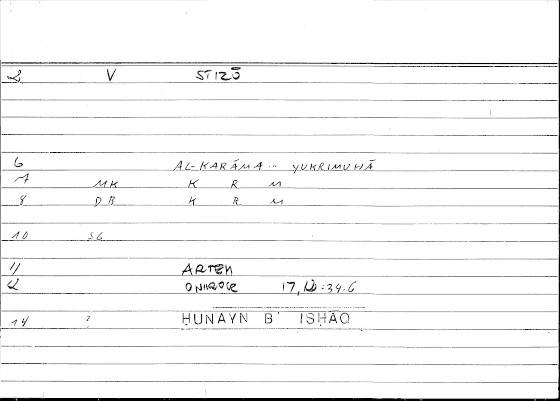 2 V STIZŌ
6 AL-KARĀMA·· YUKRIMUHĀ
7 MK K R M
8 DB K R M
10 SG
11 ARTEM
12 ONIROCR 17, :34.6
14 ? ḤUNAYN B' ISḤĀQ